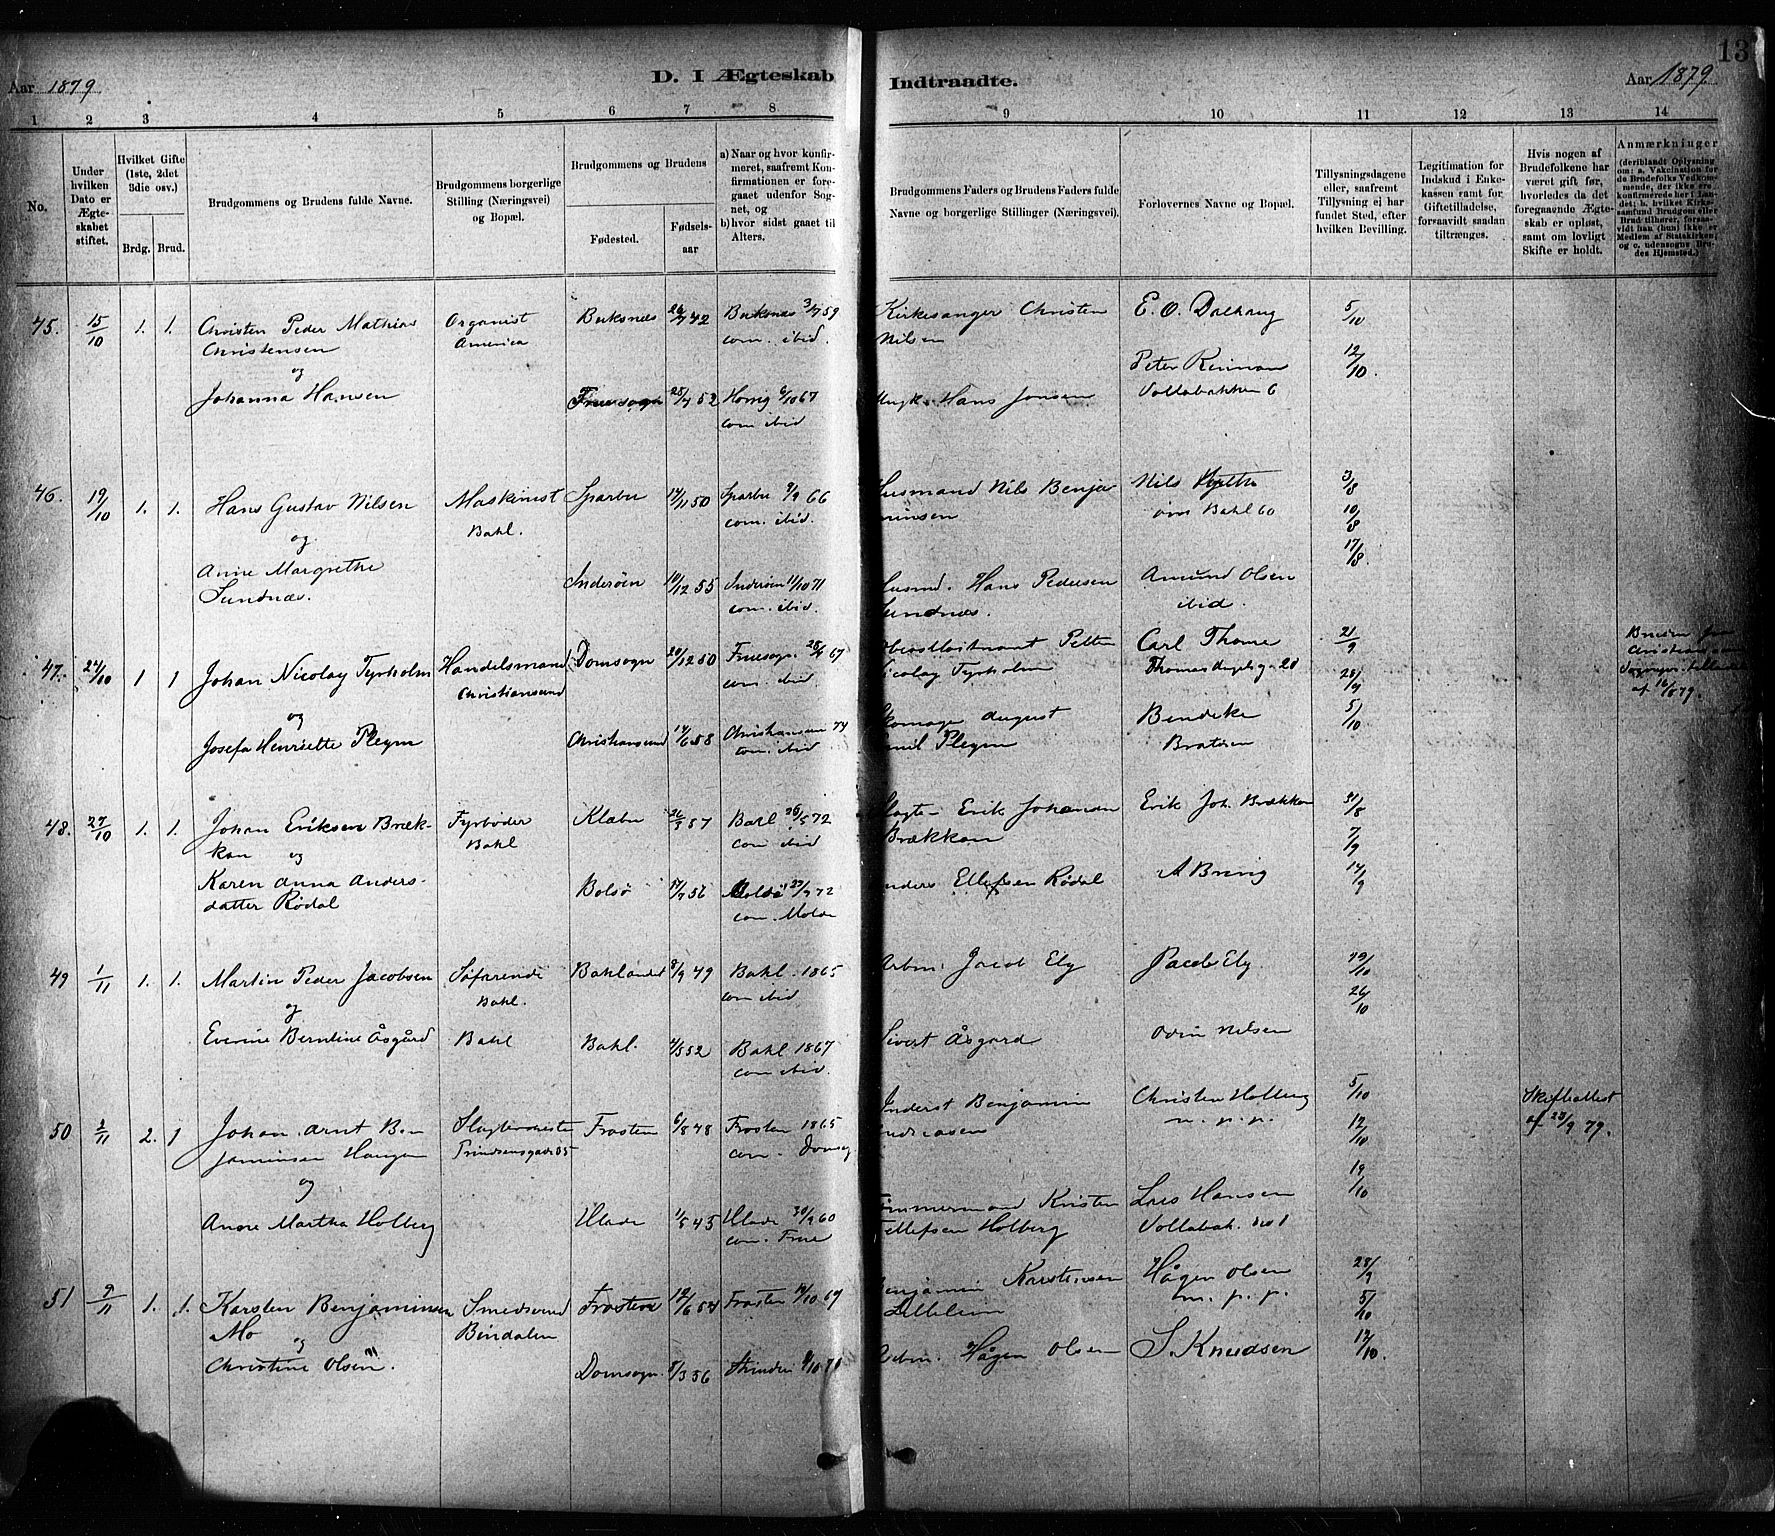 Aar 1879
D. I Ægteskab Indtraadte.
Aar 1879
13
1 2 3 4 5 6 7 8 9 10 11 12 13 14
No.
Under hvilken Dato er Ægteskabet stiftet.
Hvilket Gifte (1ste, 2det 3die osv.)
Brdg. Brud.
Brudgommens og Brudens fulde Navne.
Brudgommens borgerlige Stilling (Næringsvei) og Bopæl.
Brudgommens og Brudens
Fødested.
Fødselsaar
a) Naar og hvor konfirmeret, saafremt Konfirmationen er foregaaet udenfor Sognet, og
b) hvor sidst gaaet til Alters.
Brudgommens Faders og Brudens Faders fulde Navne og borgerlige Stillinger (Næringsvei).
Forlovernes Navne og Bopæl.
Tillysningsdagene eller, saafremt Tillysning ei har fundet Sted, efter hvilken Bevilling.
Legitimation for Indskud i Enkekassen ramt for Giftetilladelse, forsaavidt saadan tiltrænges.
Hvis nogen af Brudefolkene har været gift før, hvorledes da det foregaaende Ægteskab er opløst, samt om lovligt Skifte er holdt.
Anmærkninger
(deriblandt Oplysning om: a. Vakcination for de Brudefolks Vedkommende, der ikke ere konfirmerede her i Landet; b. hvilket Kirkesamfund Brudgom eller Brud tilhører, forsaavidt han (hun) ikke er Medlem af Statskirken, og c. udensogns Brudes Hjemsted.)
45. 15/10 1. 1. Christen Peder Mathias
Christensen
og
Johanna Hansen
Organist
America
Buksnæs 26/7 42 Buksnæs 3/7 59
com. ibid.
Fruesogn 25/7 52 6/10 67
com ibid
Kirkesanger Christen
Nilsen
Hans Jonsen
E. O. Dalhaug
Peter
Vollabakken 6
5/10
12/10.
46. 19/10 1. 1. Hans Gustav Nilsen
og
Anne Margrethe
Sundnæs.
Maskinist
Bakl.
Sparbu 14/11 50 Sparbu 66
com. ibid.
Inderøen 10/12 55 Inderøen 11/10 71
com. ibid.
Husmand Nils Benja
minsen
Husmd. Hans Pedersen
Sundnæs.
Nils
Bakl 60
Amund Olsen
ibid.
3/8
10/8
17/8
47. 24/10 1 1 Johan Nicolay Tyrholm
og
Josefa Henriette Plegm
Handelsmand
Christiansund
Domsogn 20/12 50 Fruesogn 67
com. ibid.
Christiansund 14/6 58 Christiansun 74
com. ibid
Petter
Nicolay Tyrholm
Skomager August
Emil Plegm
Carl Thome
Bendeke
Bratøren
21/9
28/9
5/10
Bruden fra
Christiansun
af 16/8 79.
48. 27/10 1. 1. Johan Eriksen Bræk-
kan og
Karen Anna Anders-
datter Rødal
Fyrbøder
Bakl
Klæbu 26/3 57 Bakl 26/5 72
com ibid
Bolsø 17/7 56 29/9 72
com. Molde
Erik Johansen
Brækkan
Anders Ellefsen Rødal
Erik Joh. Brækkan
A Bring
31/8
7/9
14/9
49 1/11 1. 1. Martin Peder Jacobsen
og
Everine Berntine Åsgård
Søfarende
Bakl.
Bakl
Baklandet 8/9 49 Bakl. 1865
com ibid
Bakl. 4/5 52 Bakl 1867
com ibid.
Arbm. Jacob Ely
Sivert Åsgard
Jacob Ely
Odin Nilsen
19/10
26/10
50 2/11 2. 1 Johan Arnt Ben
jaminsen Haugan
og
Anne Martha Holberg
Frosten 6/8 48 Frosten 1865
com. Domsog
Hlade 1/5 45 Hlade 30/9 60
com. Frue
Inderst Benjamin
Andreasen
Tømmermand Kristen
Tellefsen Holberg
Christen Holberg
m. p. p.
Lars Hansen
Vollabak. no 1
5/10
12/10
19/10
Skifteattest
af 23/9 79.
51 9/11 1. 1. Karsten Benjaminsen
Mo
og
Christine Olsen.
Smedsvend
Bindalen
Frosten 19/6 54 Frosten 4/10 69
Domsogn. 8/3 56 Strinden
Benjamin Kristensen
Arbm. Hågen Olsen
Hågen Olsen
m. p. p.
S. Knudsen
28/9
5/10
12/10.